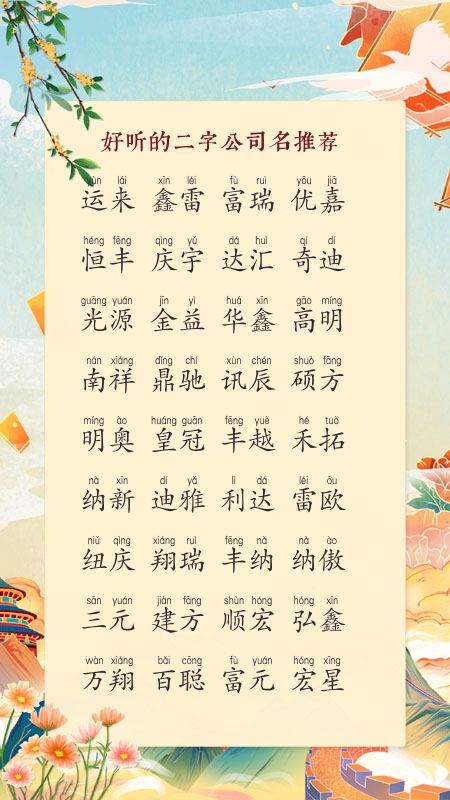 好听的二字公司名推荐
yùn lái xīn léi fù ruì yōu jiā
运来 鑫雷 富瑞 优嘉
héng fēng qìng yǔ dá huì qí dí
恒丰 庆宇 达汇 奇迪
guāng yuán jīn yì huá xīn gāo míng
光源 金益 华鑫 高明
nán xiáng dǐng chí xùn chén shuò fāng
南祥 鼎驰 讯辰 硕方
míng ào huáng guān fēng yuè hé tuò
明奥 皇冠 丰越 禾拓
nà xīn dí yǎ lì dá léi ōu
纳新 迪雅 利达 雷欧
niǔ qìng xiáng ruì fēng nà nà ào
纽庆 翔瑞 丰纳 纳傲
sān yuán jiàn fāng shùn hóng hóng xīn
三元 建方 顺宏 弘鑫
wàn xiáng bǎi cōng fù yuán hóng xīng
万翔 百聪 富元 宏星